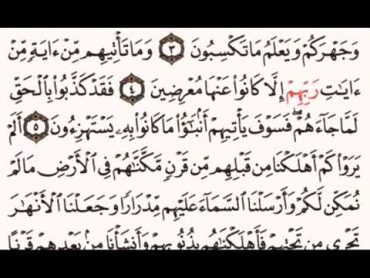 وَجَهْرَكُمْ وَيَعْلَمُ مَا تَكْسِبُونَ ٣ وَمَا تَأْتِيهِم مِّنْ ءَايَةٍ مِّنْ
ءَايَٰتِ رَبِّهِمْ إِلَّا كَانُوا۟ عَنْهَا مُعْرِضِينَ ٤ فَقَدْ كَذَّبُوا۟ بِٱلْحَقِّ
لَمَّا جَآءَهُمْ ۖ فَسَوْفَ يَأْتِيهِمْ أَنۢبَٰٓؤُا۟ مَا كَانُوا۟ بِهِۦ يَسْتَهْزِءُونَ ٥ أَلَمْ
يَرَوْا۟ كَمْ أَهْلَكْنَا مِن قَبْلِهِم مِّن قَرْنٍ مَّكَّنَّٰهُمْ فِى ٱلْأَرْضِ مَا لَمْ
نُمَكِّن لَّكُمْ وَأَرْسَلْنَا ٱلسَّمَآءَ عَلَيْهِم مِّدْرَارًا وَجَعَلْنَا ٱلْأَنْهَٰرَ
تَجْرِى مِن تَحْتِهِمْ فَأَهْلَكْنَٰهُم بِذُنُوبِهِمْ وَأَنشَأْنَا مِنۢ بَعْدِهِمْ قَرْنًا